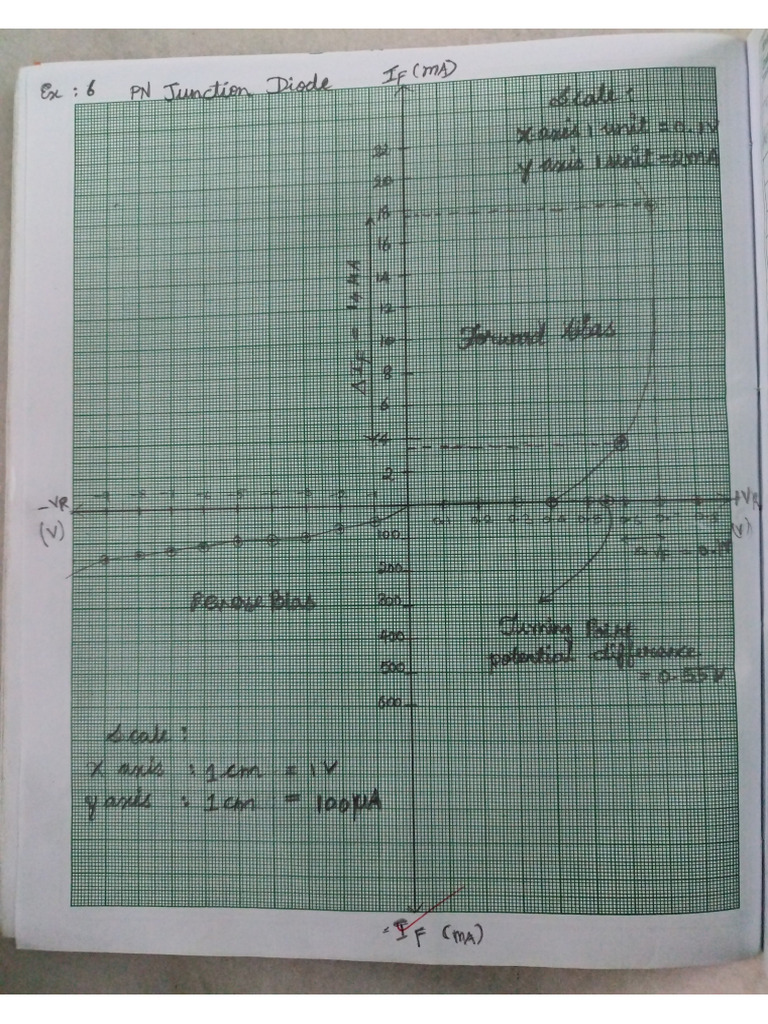 Ex : 6 PN Junction Diode IF (mA)
Scale :
x axis 1 unit = 0.1V
y axis 1 unit = 2mA
22
20
18
16
14
12
10
8
6
4
2
Forward bias
-VR
(V)
+VR
(V)
0.1 0.2 0.3 0.4
100
200
300
400
500
600
Reverse Bias
Turning Point
potential difference
= 0.55V
Scale :
x axis : 1 cm = 1V
y axis : 1 cm = 100µA
-IF (mA)